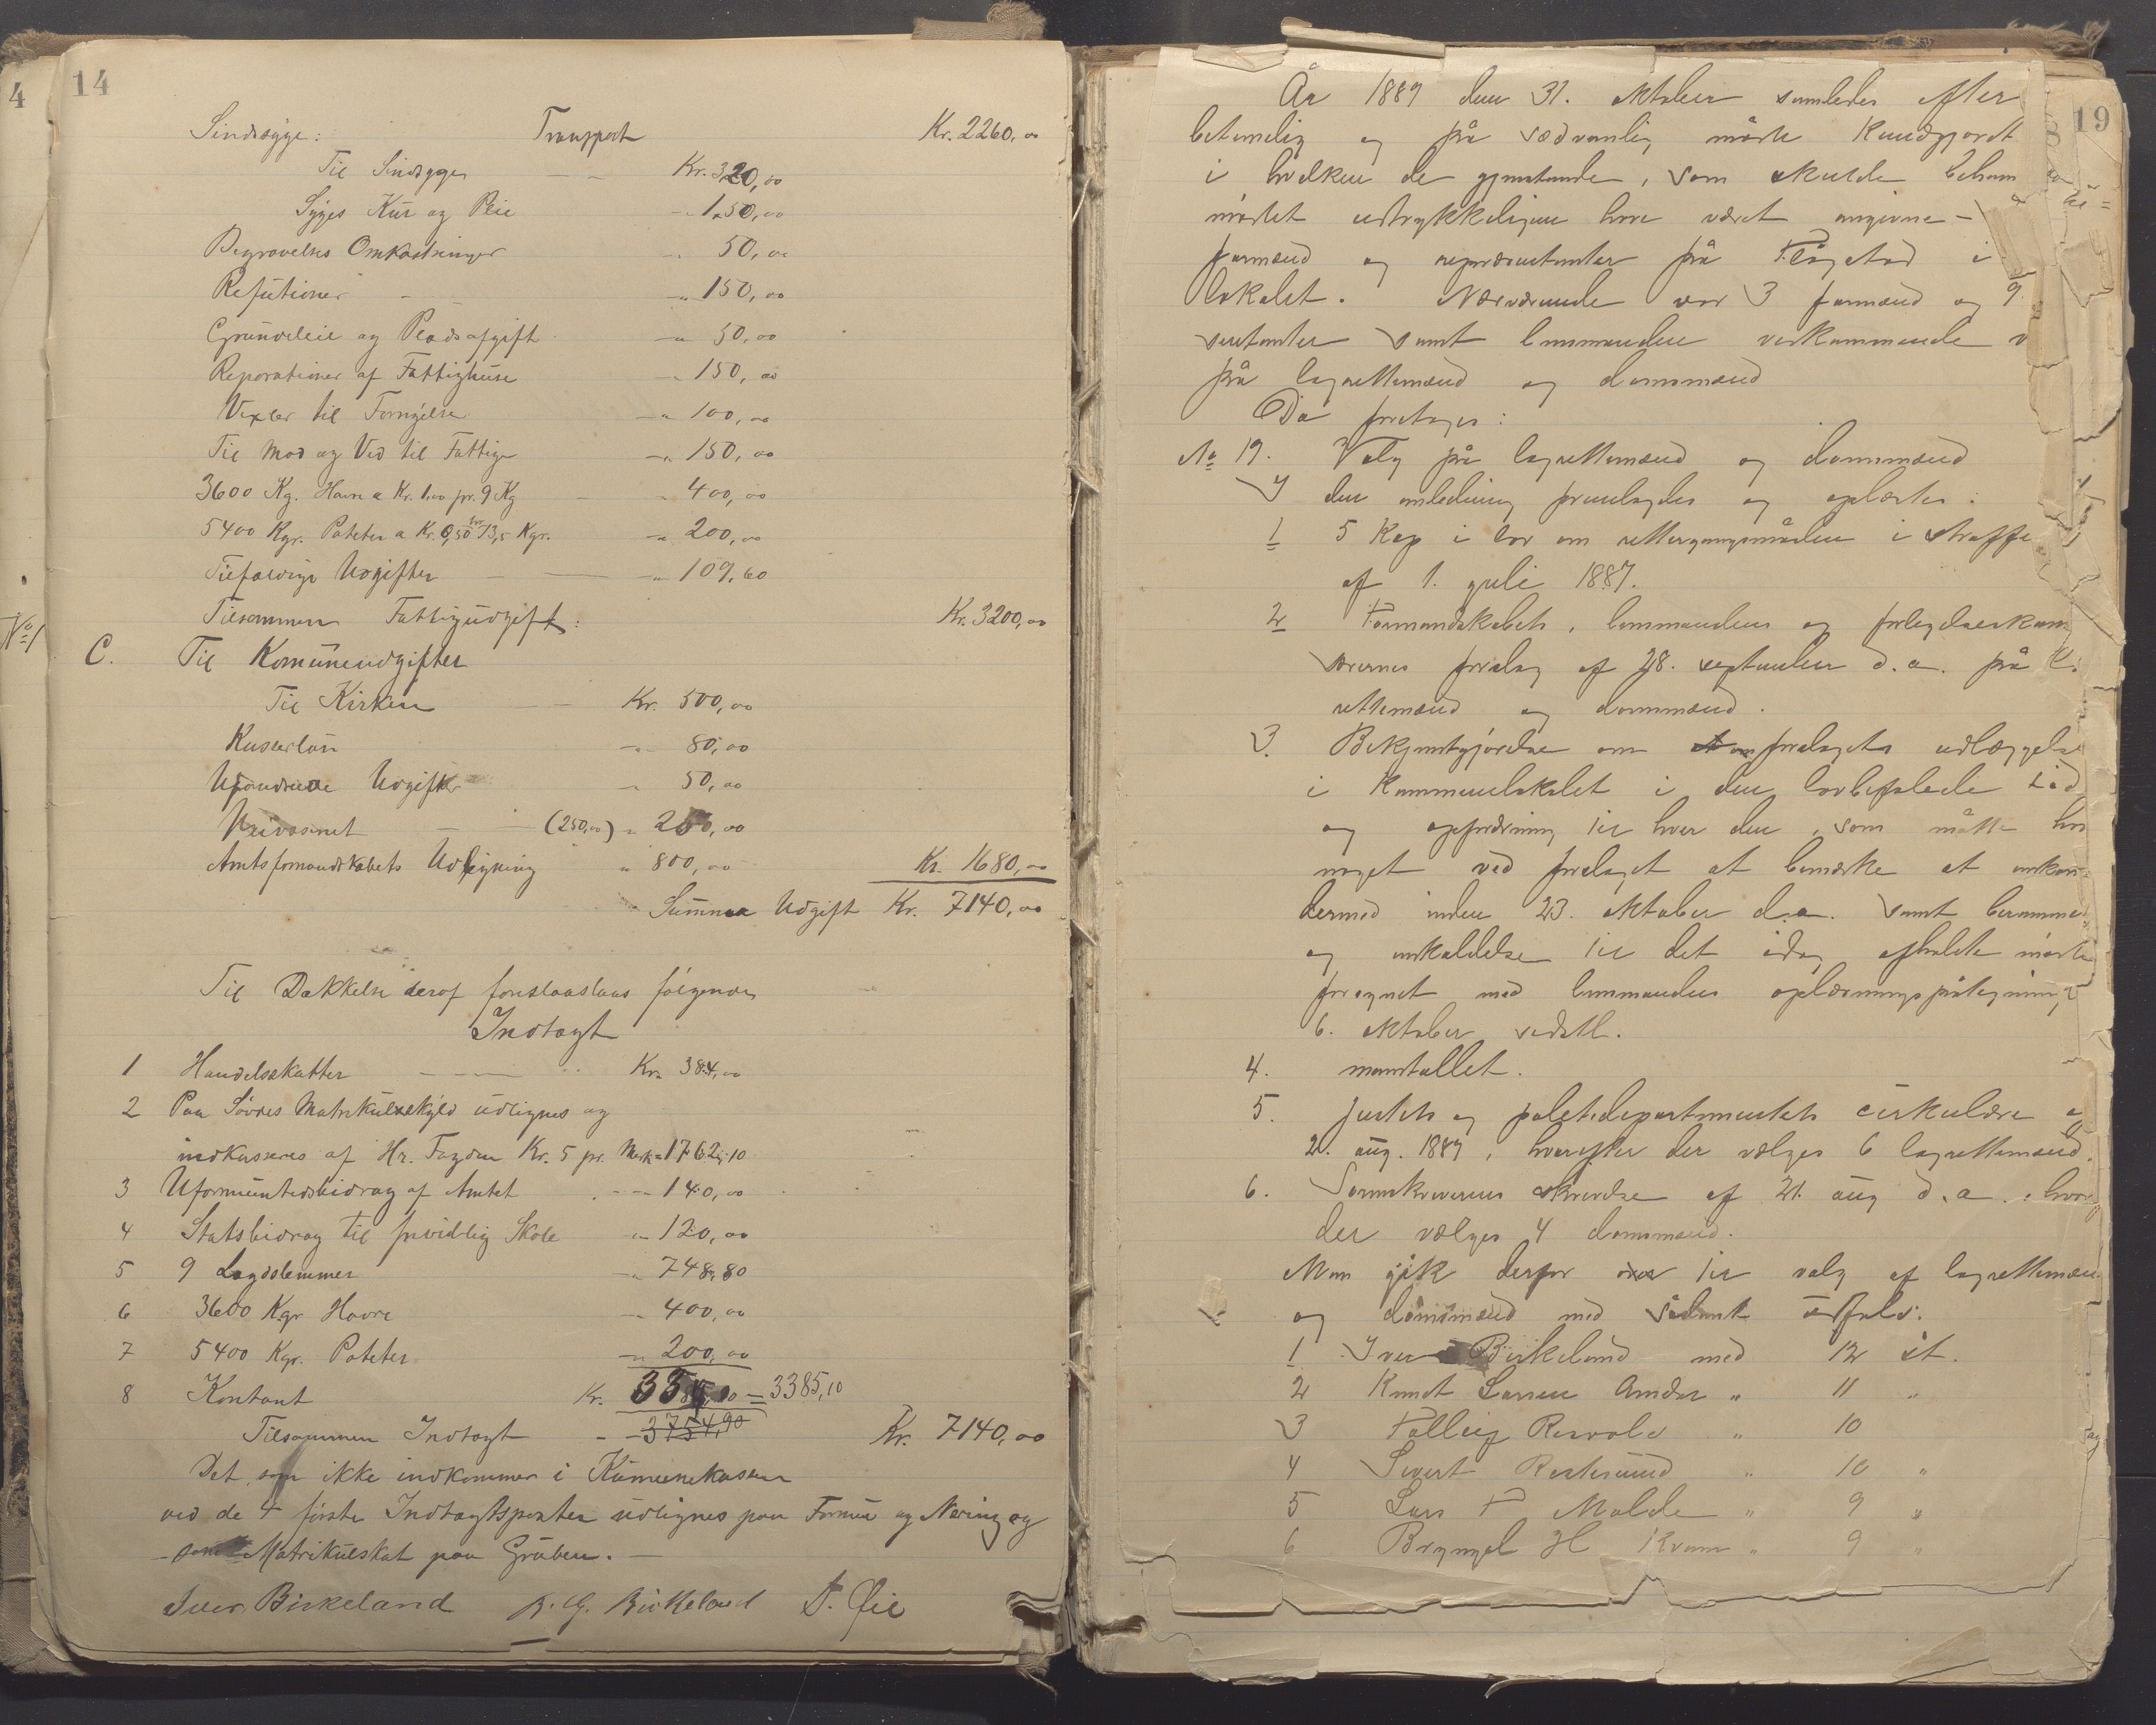 4
14
Sindssyge: Transport Kr. 2260,00
Til Sindsyge — — Kr. 320,00
Syges Kur og Pleie - " 150,00
Begravelses Omkostninger - " 50,00
Refutioner - " 150,00
Grundleie og Pladsafgift - " 50,00
Reparationer af Fattighuse - " 150,00
Vexler til Fornyelse - " 100,00
Til Mad og Ved til Fattige - " 150,00
3600 Kg. Havre a Kr. 1,00 pr. 9 Kg - " 400,00
5400 Kgr. Poteter a Kr. 0,50 pr 13,5 Kgr. - " 200,00
Tilfældige Udgifter — - " 109,60
Tilsammen Fattigudgift: Kr. 3200,00
No 1
C. Til Komuneudgifter
Til Kirken — Kr. 500,00
Kasserløn - " 80,00
Uforudseede Udgifter " 50,00
(250,00) " 250,00
Amtsformandskabets Udligning " 800,00 Kr. 1680,00
Summa Udgift Kr. 7140,00
Til Dækkelse deraf foreslaaes følgende
Indtægt
1 Handelsskatter — Kr. 384,00
2 Paa Søvdes Matrikulskyld udlignes og
indkasseres af Hr. Fogden Kr. 5 pr. Mark = 1762,10
3 Uformuenhedsbidrag af Amtet - - 140,00
4 Statsbidrag til frivillig Skole " 120,00
5 9 Lægdslemmer - " 748,80
6 3600 Kgr Havre - 400,00
7 5400 Kgr. Poteter - " 200,00
8 Kontant Kr. = 3385,10
3754,90
Tilsammen Indtægt - - Kr. 7140,00
Det som ikke indkommer i Kommunekassen
ved de 4 første Indtægtsposter udlignes paa Formue og Næring og
samt Matrikulskat paa Gruben. —
Iver Birkeland B. G. Birkeland T. Øie
19
År 1889 den 31. oktober samledes efter
betimelig og på sædvanlig måde kundgjordt
i hvilken de gjenstande, som skulde beham
mødet udtrykkeligen have været angivne —
formænd og repræsentanter på Fløgstad i
lokalet. Nærværende var 3 formænd og 9
sentanter samt lensmanden vedkommende v
på lagrettemænd og domsmænd
Da foretages:
No 19. Valg på lagrettemænd og domsmænd
I den anledning fremlagdes og oplæstes:
1 5 Kap i lov om rettergangsmåden i straffe
af 1. juli 1887.
2 Formandskabets, lensmandens og forligelseskom
særernes forslag af 28. september d.a. på
rettemænd og domsmænd.
3. Bekjentgjørelse om forslagets udlæggelse
i kommunelokalet i den lovbefalede tid
og opfordring til hver den, som måtte hav
noget ved forslaget at bemærke at
dermed inden 23. oktober d.a. samt
og indkaldelse til det idag afholdte møde
forsynet med lensmandens oplæsningspåtegning
6. oktober sidstl.
4. mandtallet.
5. Justits og politidepartementets cirkulære a
2. aug. 1889, hvorefter der vælges 6 lagrettemænd.
6. Sorenskriverens skrivelse af 21. aug d.a. hvor
der vælges 4 domsmænd.
Man gik derfor over til valg af lagrettemæn
og domsmænd med sådant udfald:
1 Iver Birkeland med 12 st.
2 Knut Larsen Amdar " 11 "
3 " 10
4 Sivert " 10 "
5 Lars T Molde " 9 "
6 Brynjel H Kvam " 9 "